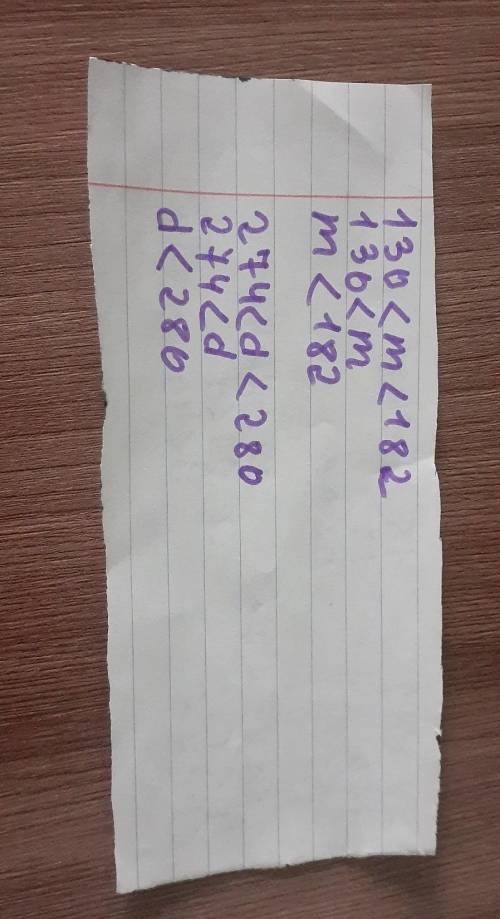 130<m<182
130<m
m<182
274<d<280
274<d
d<280